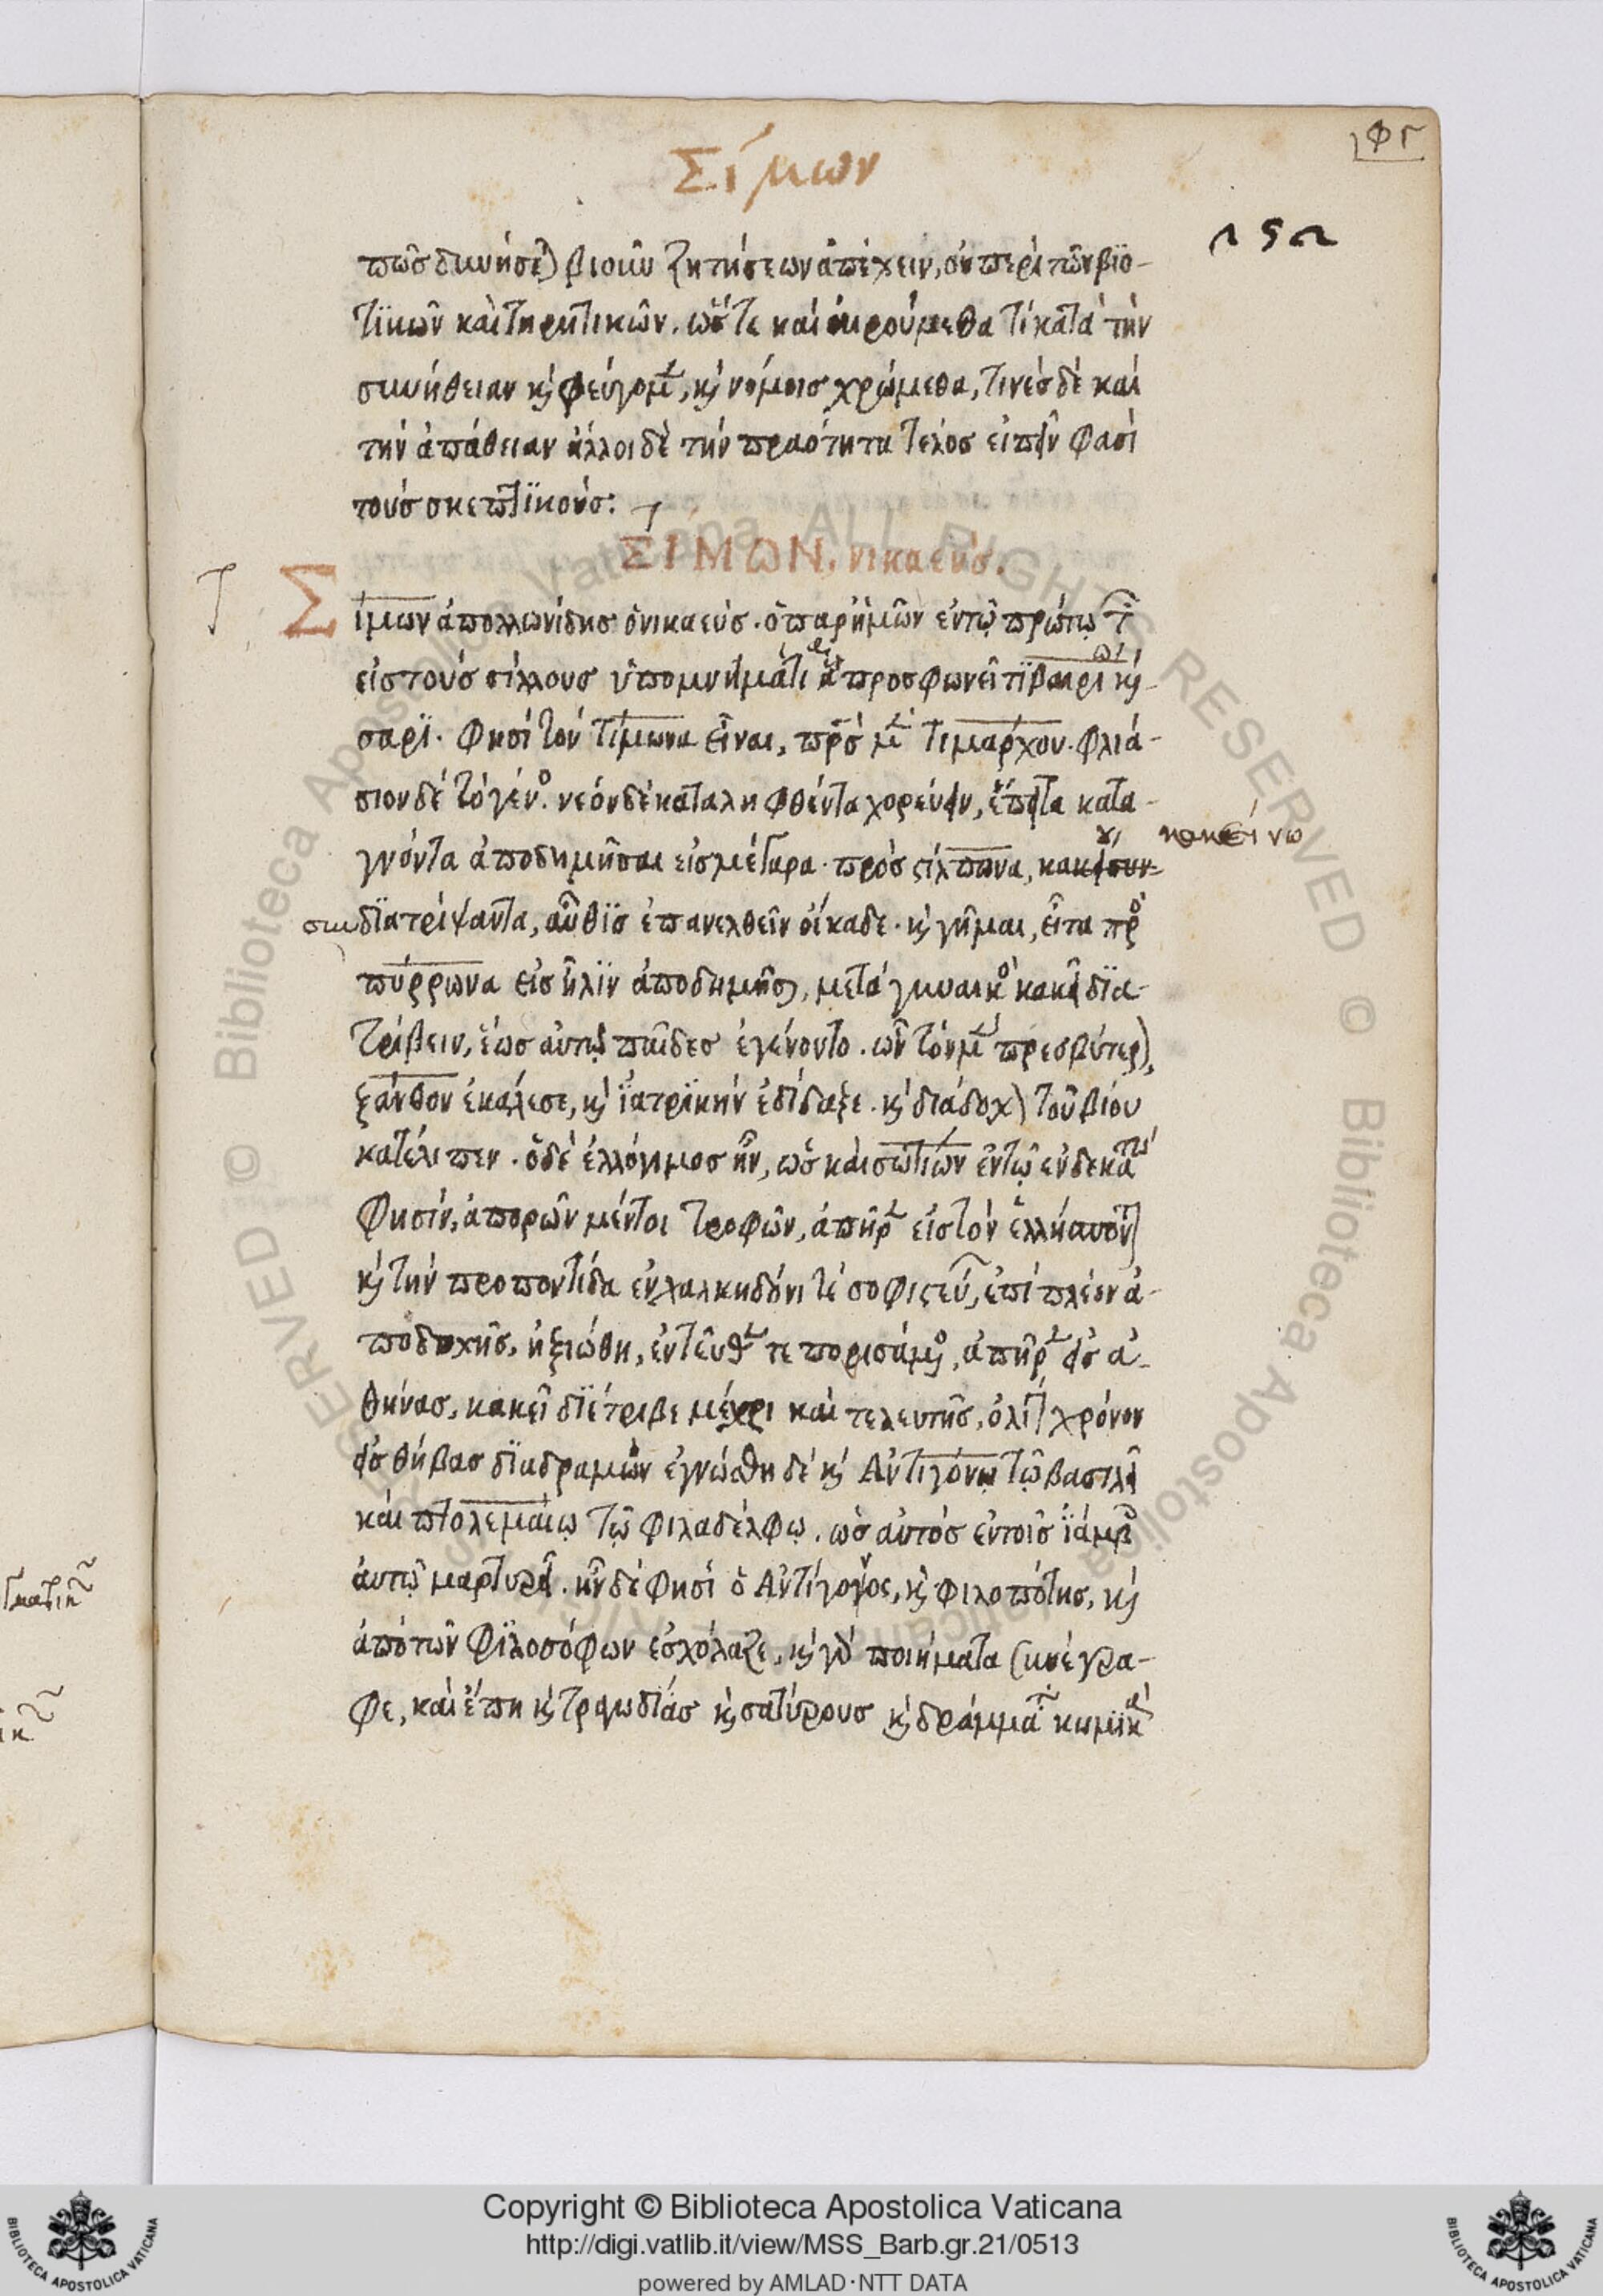 φΓ
Σίμων
252
πῶσ δυνήσε) βιοῦν ζητήσεων ἀπέχειν, οὐ περὶ τῶν βϊο-
τϊκῶν καὶ τηρητικῶν. ὥστε καὶ αἱρούμεθα τί κατὰ τὴν
συνήθειαν κ φεύγομ, κ νόμοισ χρώμεθα, τινὲσ δὲ καὶ
τὴν ἀπάθειαν ἄλλοι δὲ τὴν πραότητα τέλοσ εἰπεῖν φασὶ
τοὺσ σκεπτϊκούσ:
ΣΙΜΩΝ. νικαεύσ.
Σίμων ἀπολλωνίδησ ὁ νικαεύσ. ὁ παρ ἡμῶν ἐν τῷ πρώτῳ τ
εἰσ τοὺσ σίλλουσ ὑπομνήματι ἃ προσφωνεῖ τϊβαιρι κ
σαρϊ. φησὶ τὸν τίμωνα εἶναι, πρσ μ τιμάρχου. φλιά-
σιον δὲ τὸ γέν. νεὸν δὲ καταλειφθέντα χορεύειν, ἔπειτα κατα-
γνόντα ἀποδημῆσαι εἰσ μέγαρα. πρὸσ ϛίλπωνα, κακεῖ συν-
κακείνω
συνδϊατρίψαντα, αὖθϊσ ἐπανελθεῖν οἴκαδε. κ γῆμαι, εἶτα πρ
πύρρωνα εἰσ ἦλϊν ἀποδημῆσ, μετὰ γυναικ κακεῖ δϊα-
τρίβειν, ἕωσ αὐτῷ παῖδεσ ἐγένοντο. ὧν τὸν μ πρεσβύτερ),
ξάνθον ἐκάλεσε, κ ϊατρϊκὴν ἐδίδαξε. κ διάδοχ) τοῦ βίου
κατέλιπεν. ὁ δὲ ἐλλόγιμοσ ἦν, ὡσ καὶ σωτίων ἐν τῷ ἑνδεκάτω
φησίν, ἀπορῶν μέντοι τροφῶν, ἀπῆρ εἰσ τὸν ἑλλήσποντ
κ τὴν προποντίδα ἐν χαλκηδόνι τὲ σοφιϛεύ, ἐπὶ πλέον ἀ-
ποδοχῆσ, ἠξιώθη, ἐντεῦθ τε πορισάμ, ἀπῆρ εἰσ ἀ-
θήνασ, κακεῖ δϊέτριβε μέχρι καὶ τελευτῆσ, ὀλίγ χρόνον
εἰσ θήβασ δϊαδραμὼν ἐγνώσθη δὲ κ Ἀντιγόνῳ τῷ βασιλεῖ
καὶ πτολεμαίῳ τῷ φιλαδέλφῳ. ὡσ αὐτόσ ἐν τοῖσ ϊάμβ
αὐτῷ μαρτυρεῖ. ἦν δὲ φησὶ ὁ Ἀντίγονος, κ φιλοπότησ, κ
ἀπὸ τῶν φϊλοσόφων ἐσχόλαζε, κ γὰ ποιήματα συνέγρα-
φε, καὶ ἔπη κ τραγωδίασ κ σατύρουσ κ δράμματ κωμϊκ
Copyright © Biblioteca Apostolica Vaticana
http://digi.vatlib.it/view/MSS_Barb.gr.21/0513
powered by AMLAD·NTT DATA